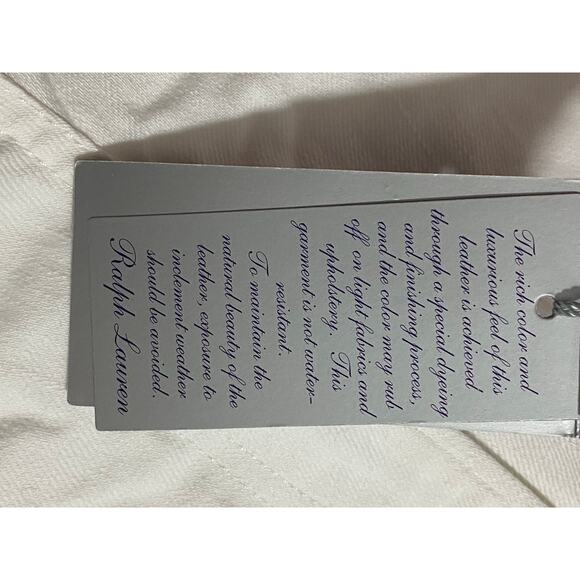 The rich color and
luxurious feel of this
leather is achieved
through a special dyeing
and finishing process,
and the color may rub
off on light fabrics and
upholstery. This
garment is not water-
resistant.
To maintain the
natural beauty of the
leather, exposure to
inclement weather
should be avoided.
Ralph Lauren